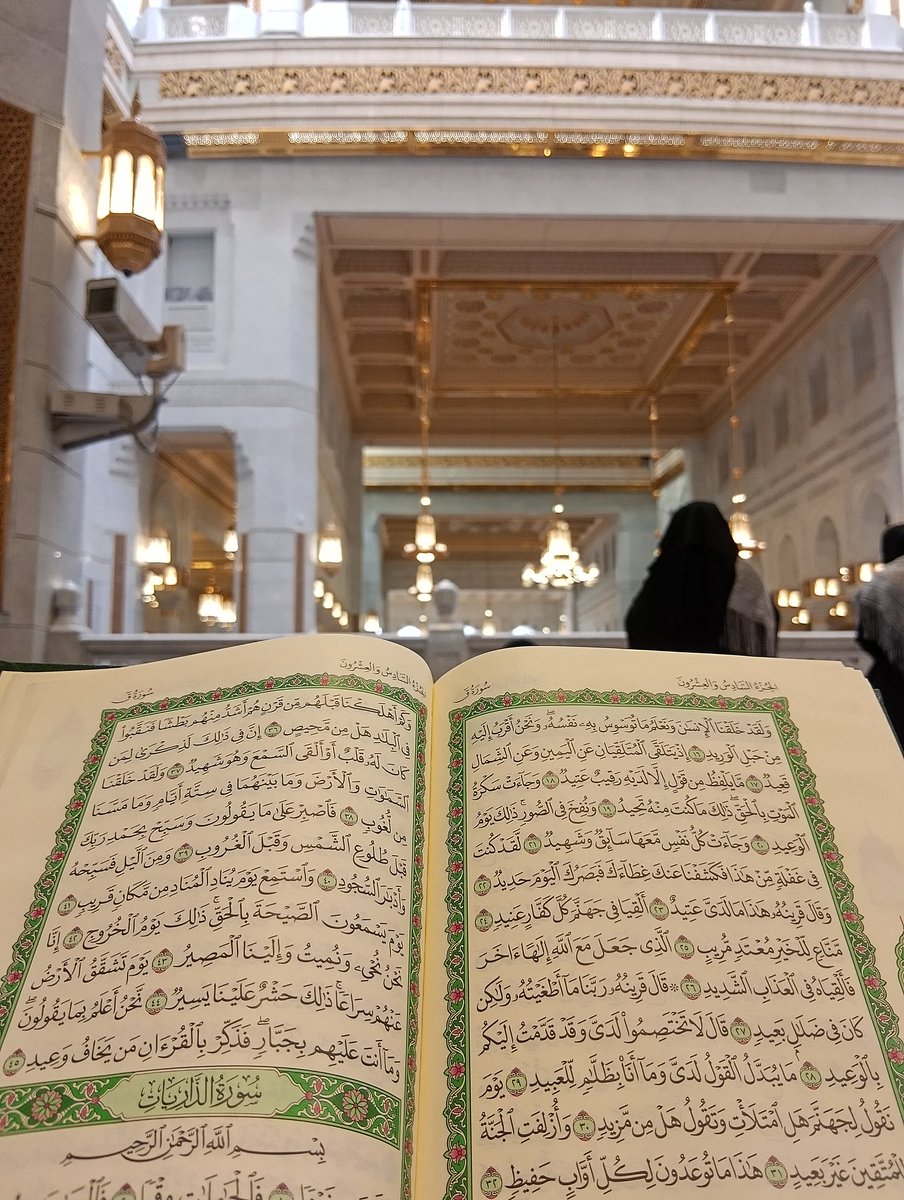 الجُزءُ السَّادِسُ وَالعِشْرُونَ
سُورَةُ قٓ
وَلَقَدْ خَلَقْنَا ٱلْإِنسَٰنَ وَنَعْلَمُ مَا تُوَسْوِسُ بِهِۦ نَفْسُهُۥ ۖ وَنَحْنُ أَقْرَبُ إِلَيْهِ
مِنْ حَبْلِ ٱلْوَرِيدِ ١٦ إِذْ يَتَلَقَّى ٱلْمُتَلَقِّيَانِ عَنِ ٱلْيَمِينِ وَعَنِ ٱلشِّمَالِ
قَعِيدٌ ١٧ مَّا يَلْفِظُ مِن قَوْلٍ إِلَّا لَدَيْهِ رَقِيبٌ عَتِيدٌ ١٨ وَجَآءَتْ سَكْرَةُ
ٱلْمَوْتِ بِٱلْحَقِّ ۖ ذَٰلِكَ مَا كُنتَ مِنْهُ تَحِيدُ ١٩ وَنُفِخَ فِى ٱلصُّورِ ۚ ذَٰلِكَ يَوْمُ
ٱلْوَعِيدِ ٢٠ وَجَآءَتْ كُلُّ نَفْسٍ مَّعَهَا سَآئِقٌ وَشَهِيدٌ ٢١ لَّقَدْ كُنتَ
فِى غَفْلَةٍ مِّنْ هَٰذَا فَكَشَفْنَا عَنكَ غِطَآءَكَ فَبَصَرُكَ ٱلْيَوْمَ حَدِيدٌ ٢٢
وَقَالَ قَرِينُهُۥ هَٰذَا مَا لَدَىَّ عَتِيدٌ ٢٣ أَلْقِيَا فِى جَهَنَّمَ كُلَّ كَفَّارٍ عَنِيدٍ ٢٤
مَّنَّاعٍ لِّلْخَيْرِ مُعْتَدٍ مُّرِيبٍ ٢٥ ٱلَّذِى جَعَلَ مَعَ ٱللَّهِ إِلَٰهًا ءَاخَرَ
فَأَلْقِيَاهُ فِى ٱلْعَذَابِ ٱلشَّدِيدِ ٢٦ ۞ قَالَ قَرِينُهُۥ رَبَّنَا مَآ أَطْغَيْتُهُۥ وَلَٰكِن
كَانَ فِى ضَلَٰلٍۭ بَعِيدٍ ٢٧ قَالَ لَا تَخْتَصِمُوا۟ لَدَىَّ وَقَدْ قَدَّمْتُ إِلَيْكُم
بِٱلْوَعِيدِ ٢٨ مَا يُبَدَّلُ ٱلْقَوْلُ لَدَىَّ وَمَآ أَنَا۠ بِظَلَّٰمٍ لِّلْعَبِيدِ ٢٩ يَوْمَ
نَقُولُ لِجَهَنَّمَ هَلِ ٱمْتَلَأْتِ وَتَقُولُ هَلْ مِن مَّزِيدٍ ٣٠ وَأُزْلِفَتِ ٱلْجَنَّةُ
لِلْمُتَّقِينَ غَيْرَ بَعِيدٍ ٣١ هَٰذَا مَا تُوعَدُونَ لِكُلِّ أَوَّابٍ حَفِيظٍ ٣٢
الجُزءُ السَّادِسُ وَالعِشْرُونَ
سُورَةُ قٓ
وَكَمْ أَهْلَكْنَا قَبْلَهُم مِّن قَرْنٍ هُمْ أَشَدُّ مِنْهُم بَطْشًا فَنَقَّبُوا۟
فِى ٱلْبِلَٰدِ هَلْ مِن مَّحِيصٍ ٣٦ إِنَّ فِى ذَٰلِكَ لَذِكْرَىٰ لِمَن
كَانَ لَهُۥ قَلْبٌ أَوْ أَلْقَى ٱلسَّمْعَ وَهُوَ شَهِيدٌ ٣٧ وَلَقَدْ خَلَقْنَا
ٱلسَّمَٰوَٰتِ وَٱلْأَرْضَ وَمَا بَيْنَهُمَا فِى سِتَّةِ أَيَّامٍ وَمَا مَسَّنَا
مِن لُّغُوبٍ ٣٨ فَٱصْبِرْ عَلَىٰ مَا يَقُولُونَ وَسَبِّحْ بِحَمْدِ رَبِّكَ
قَبْلَ طُلُوعِ ٱلشَّمْسِ وَقَبْلَ ٱلْغُرُوبِ ٣٩ وَمِنَ ٱلَّيْلِ فَسَبِّحْهُ
وَأَدْبَٰرَ ٱلسُّجُودِ ٤٠ وَٱسْتَمِعْ يَوْمَ يُنَادِ ٱلْمُنَادِ مِن مَّكَانٍ قَرِيبٍ ٤١
يَوْمَ يَسْمَعُونَ ٱلصَّيْحَةَ بِٱلْحَقِّ ۚ ذَٰلِكَ يَوْمُ ٱلْخُرُوجِ ٤٢ إِنَّا
نَحْنُ نُحْىِۦ وَنُمِيتُ وَإِلَيْنَا ٱلْمَصِيرُ ٤٣ يَوْمَ تَشَقَّقُ ٱلْأَرْضُ
عَنْهُمْ سِرَاعًا ۚ ذَٰلِكَ حَشْرٌ عَلَيْنَا يَسِيرٌ ٤٤ نَّحْنُ أَعْلَمُ بِمَا يَقُولُونَ ۖ
وَمَآ أَنتَ عَلَيْهِم بِجَبَّارٍ ۖ فَذَكِّرْ بِٱلْقُرْءَانِ مَن يَخَافُ وَعِيدِ ٤٥
سُورَةُ الذَّارِيَاتِ
بِسْمِ ٱللَّهِ ٱلرَّحْمَٰنِ ٱلرَّحِيمِ